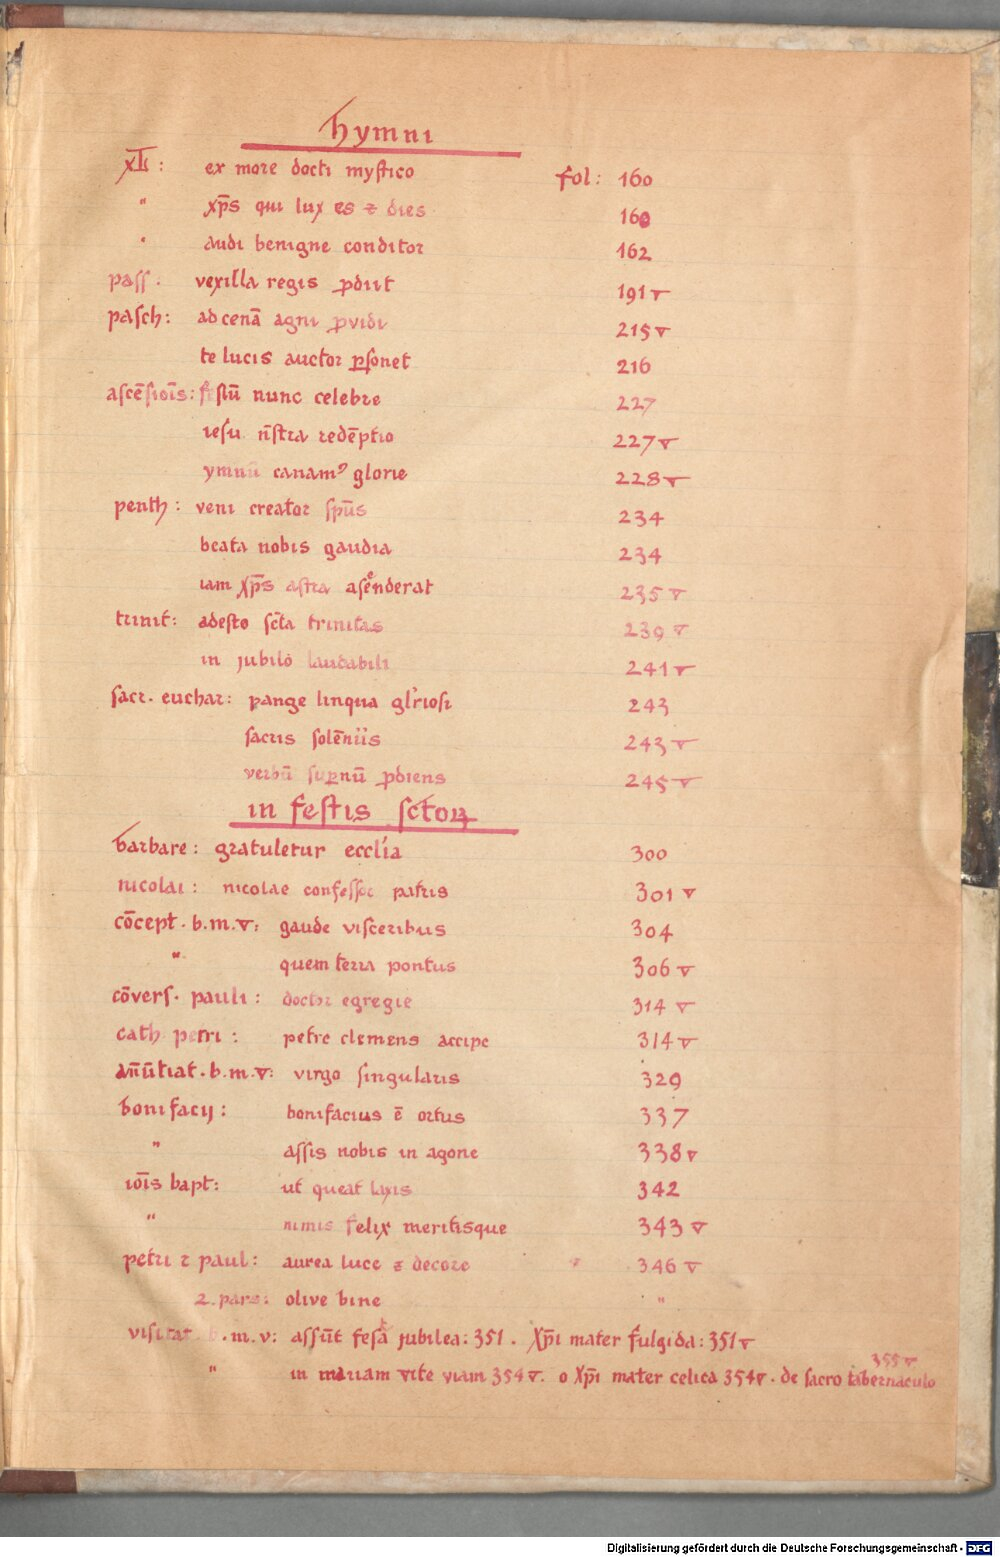 hymni
xL: ex more docti mystico fol: 160
" xp̄s qui lux es z dies 160
" audi benigne conditor 162
pass: vexilla regis pdiit 191v
pasch: ad cenā agni pvidi 215v
te lucis auctor psonet 216
ascēsiōīs: festū nunc celebre 227
iesu nr̄stra redēptio 227v
ymnū canamꝰ glorie 228v
penth: veni creator sp̄us 234
beata nobis gaudia 234
iam xp̄s astra asenderat 235v
trinit: adesto sc̄ta trinitas 239v
in jubilo laudabili 241v
sacr. euchar: pange lingua gl'riosi 243
sacris solēniis 243v
verbū supnū pdiens 245v
in festis sctoꝝ
barbare: gratuletur eccl'ia 300
nicolai: nicolae confessor patris 301v
cōcept. b.m.v: gaude visceribus 304
" quem terra pontus 306v
cōvers. pauli: doctor egregie 314v
cath petri: petre clemens accipe 314v
an̄ūtiat. b.m.v: virgo singularis 329
bonifacij: bonifacius ē ortus 337
" assis nobis in agone 338v
iōīs bapt: ut queat laxis 342
" nimis felix meritisque 343v
petri z paul: aurea luce z decore 346v
2. pars: olive bine "
visitat. b.m.v: assūt festa jubilea: 351. xp̄i mater fulgida: 351v
355v
" in mariam vite viam 354v. o xp̄i mater celica 354v. de sacro tabernaculo
Digitalisierung gefördert durch die Deutsche Forschungsgemeinschaft - DFG